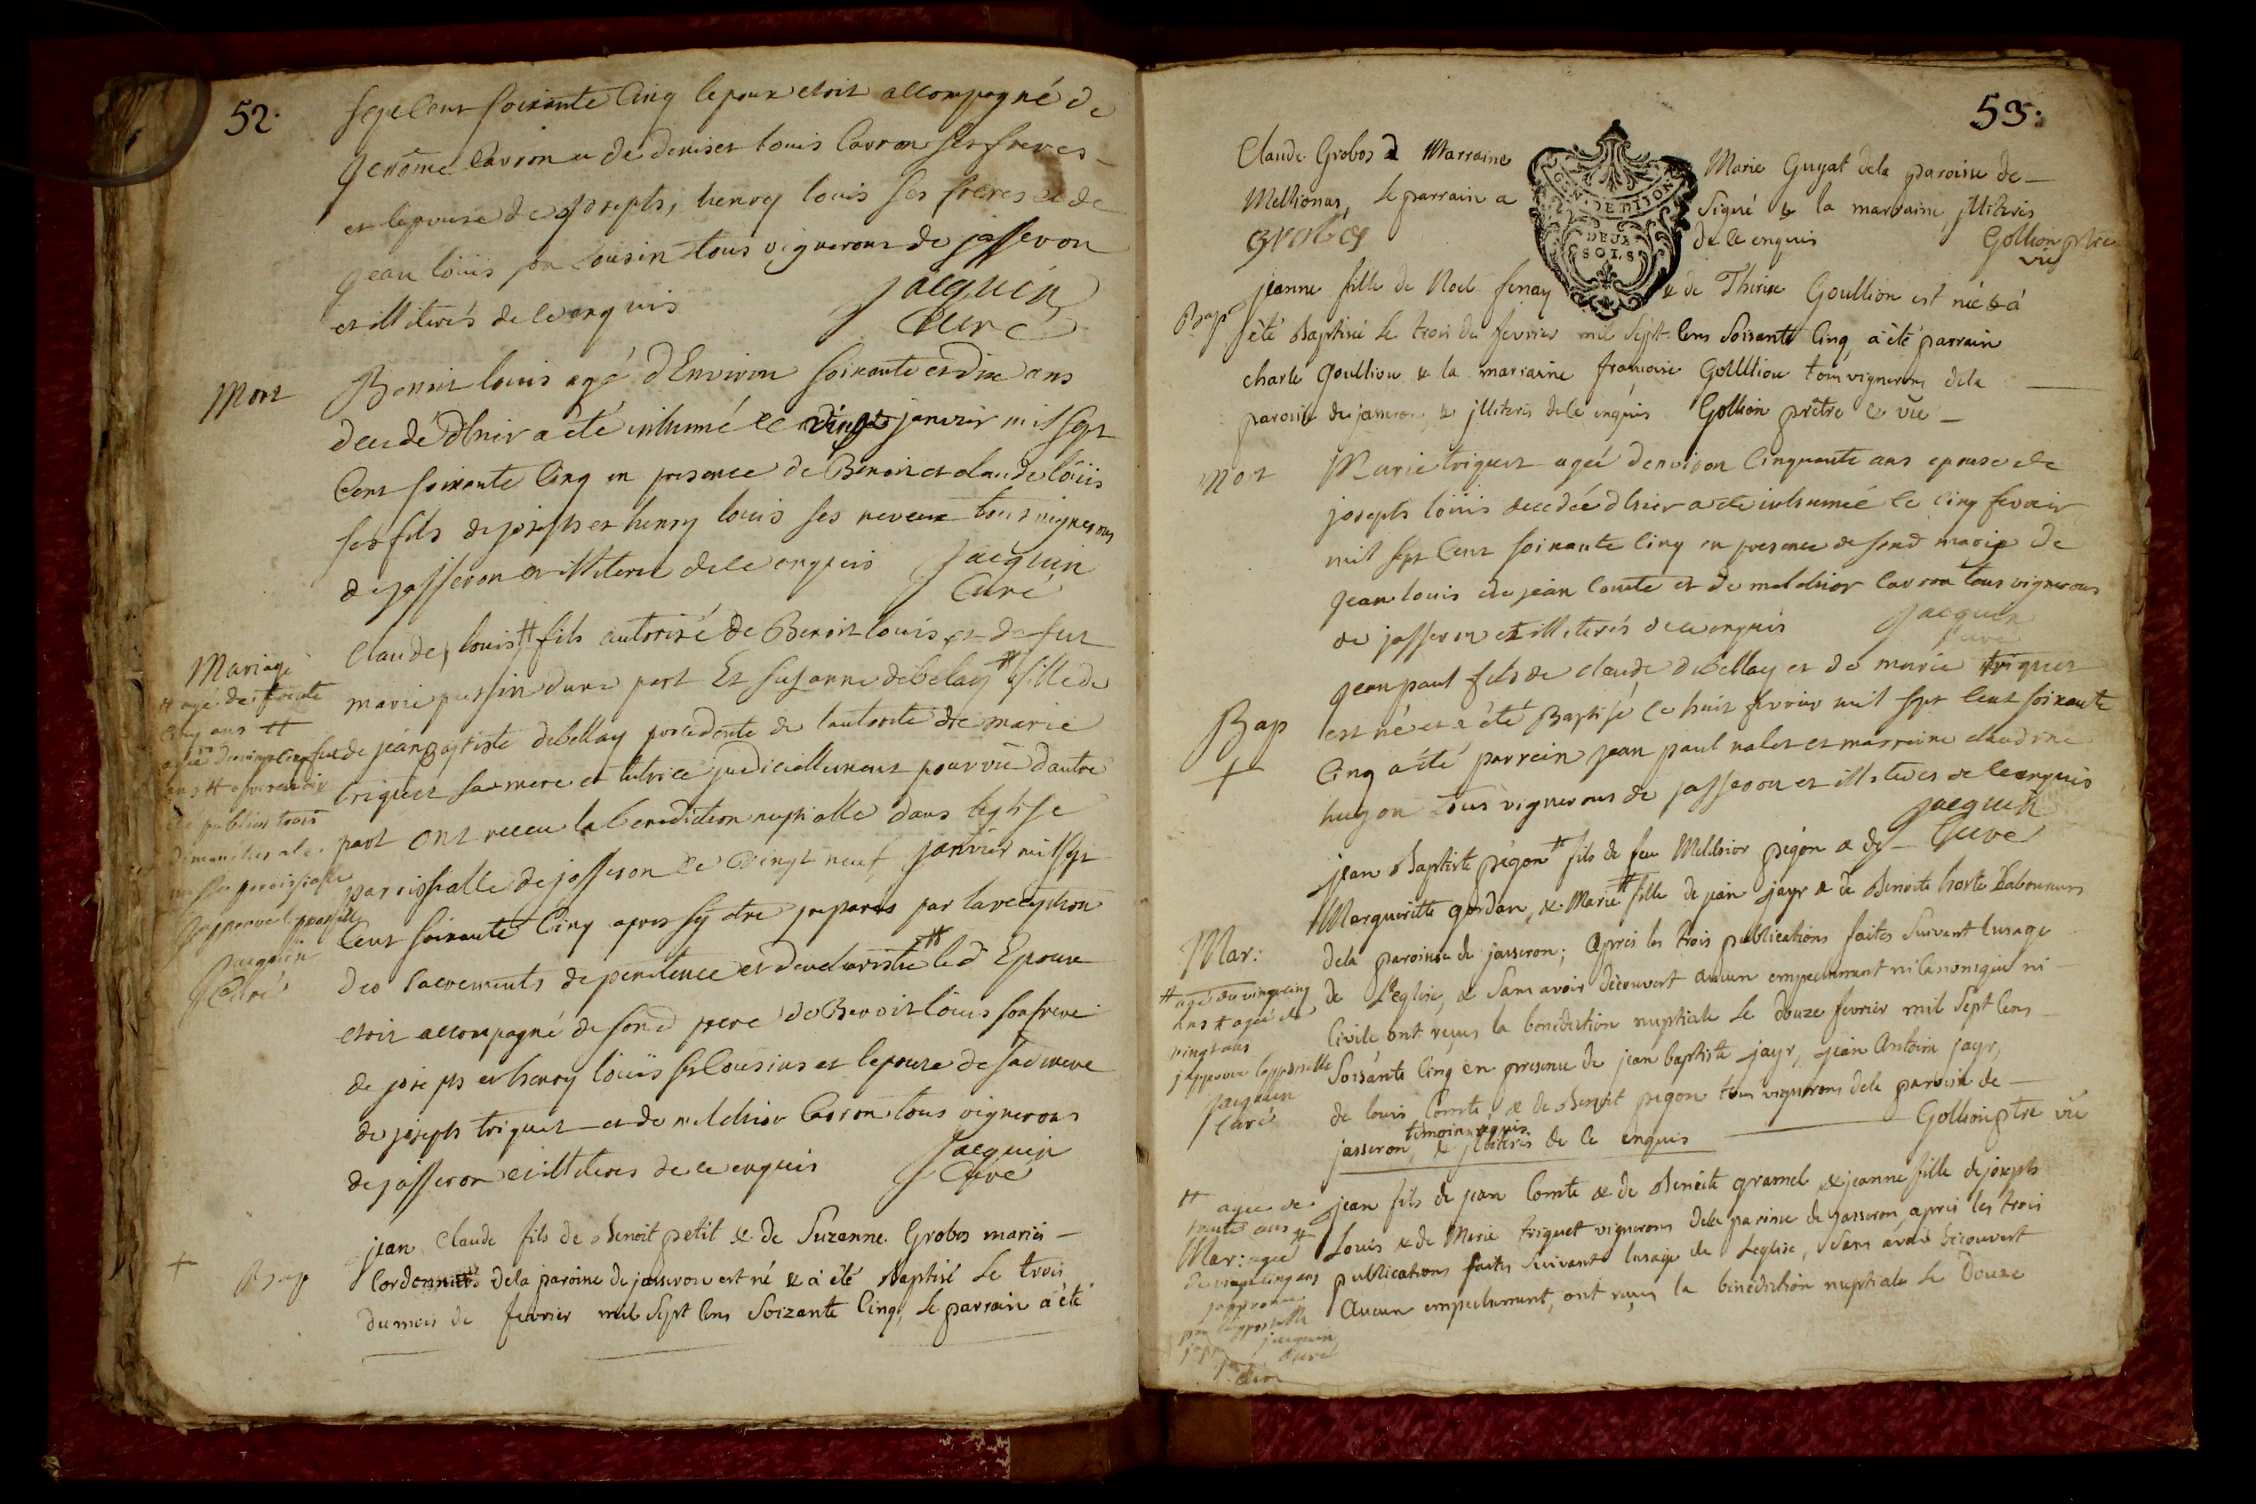 52.
sept Cent soixante Cinq lepoux etoit accompagné de
gerôme Cavron et de deniset louis Cavron ses freres
et lepouse de joseph, henry louis ses freres et de
jean loüis son Cousin tous vignerons de jasseron
et illiterés de ce enquis
jacquin
Curé
Mort
Benoit louis agé dEnviron soixante et dix ans
decedé dhier a été inhumé le vingt janvier mil sept
Cent soixante Cinq en presence de Benoit et claude loüis
ses fils de joseph et henry louis ses neveux tous vignerons
de jasseron et illiteres de ce enquis jacquin
Curé
Mariage
# agé de trente
Cinq ans #
Claude louis # fils autorisé de Benoit louis et de fut
marie pessin dune part Et suzanne debelay # fille de
feu de jean Baptiste debellay procedente de lautorité de marie
triquet sa mere et tutrice judiciellement pourvüe dautre
part ont receu la benediction nuptialle dans leglise
parroissialle de jasseron le vingt neuf janvier mil sept
Cent soixante Cinq apres sy etre preparés par la reception
des sacrements de penitence et deucharistie # led Epoux
etoit accompagné de sond pere de Benoit loüis son frere
de joseph et henry loüis ses Cousins et lepouse de sad mere
de joseph triquet et de melchior Cavron tous vignerons
de jasseron et illiteres de ce enquis
jacquin
Curé
publiés trois
dimanches a la
messe paroissiale
japprouve lapostille
jacquin
Curé
+ Bap
jean Claude fils de Benoit petit & de Suzanne Grobos mariés
Cordonniers dela paroisse de jasseron est né & à été Baptisé Le trois
du mois de fevrier mil Sept Cens Soizante Cinq, Le parrain à été
53.
Claude Grobos & Marraine Marie Guyat dela paroisse de
Mellionas, Le parrain a Signé & la marraine jlliterés
grobos de ce enquis Gollion ptre
vic
GEN. DE DIJON
DEUX
SOLS
Bap
jeanne fille de Noel fenay & de Thérèse Goullion est née & à
été Baptisé Le trois du fevrier mil Sept Cens Soisante Cinq, à été parrain
charle Goullion & la marraine françoise Gollliou tous vignerons dela
paroisse de jasseron & jlliteris de ce enquis Gollion prêtre & vic
Mort
Marie triquet agée denviron Cinquante ans epouse de
joseph loüis decedée dhier a été inhumée le cinq fevrier
mil sept Cent soixante Cinq en presence de sond marie de
jean louis de jean Comte et de melchior Cavron tous vignerons
de jasseron et illiterés de ce enquis
jacquin
Curé
Bap
+
jean paul fils de claude debellay et de marie triquet
est né et a été Baptisé le huit fevrier mil sept Cent soixante
Cinq a été parrein jean paul nalet et marreine claudine
hugon tous vignerons de jasseron et illiteres de ce enquis
jacquin
Curé
Mar:
jean Baptiste pégon # fils de feu Melchior pégon & de
Margueritte gordan, & Marie # fille de jean jayr & de Benoite horte Laboureurs
dela paroisse de jasseron; apres les trois publications faites Suivant lusage
de L'eglise, & Sans avoir découvert aucun empechement ni Canonique ni
Civile ont reçus la benediction nuptiale Le douze fevrier mil Sept Cens
Soisante Cinq en presence de jean baptiste jayr, jean Antoine jayr,
de louis Comte, & de Benoit pegon tous vignerons dela paroisse de
jasseron, temoins requis & jlliterés de ce enquis Gollion ptre vic
# agé de vingt cinq
ans # agée de
vingt ans
japprouve lappostille
jacquin
Curé
# agée de
trente ans #
Mar: agée
de vingt cinq ans
japprouve
jacquin
curé
jean fils de jean Comte & de Benoite gramel & jeanne fille de joseph
Louis & de Marie triquet vignerons dela paroisse de jasseron, après les trois
publications faites Suivant lusage de Leglise, Sans avoir découvert
Aucun empechement, ont reçus la bénédiction nuptiale Le Douze